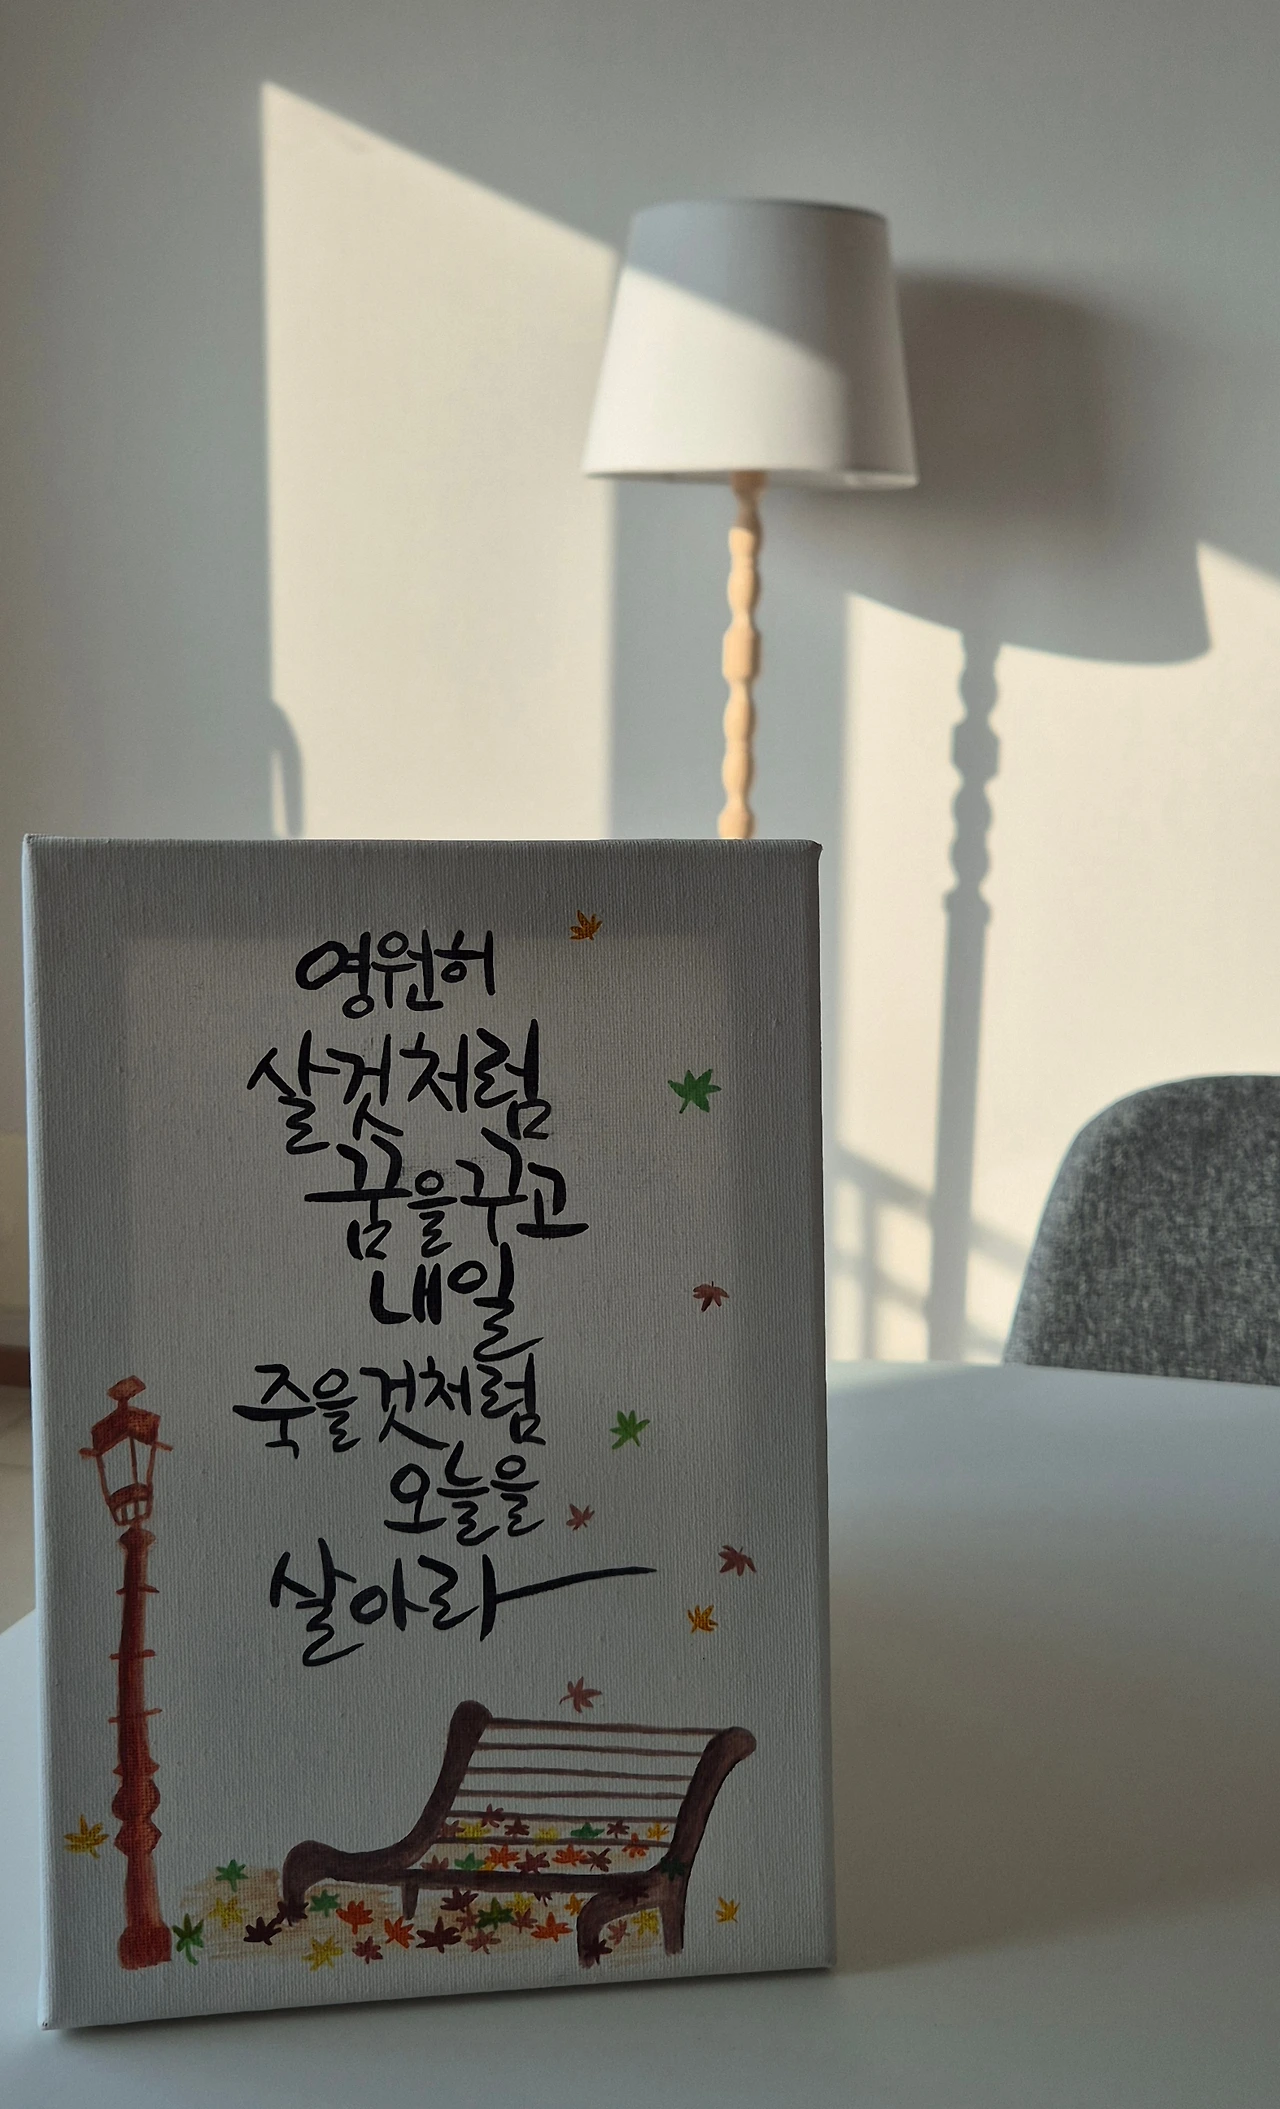 영원히
살것처럼
꿈을꾸고
내일
죽을것처럼
오늘을
살아라